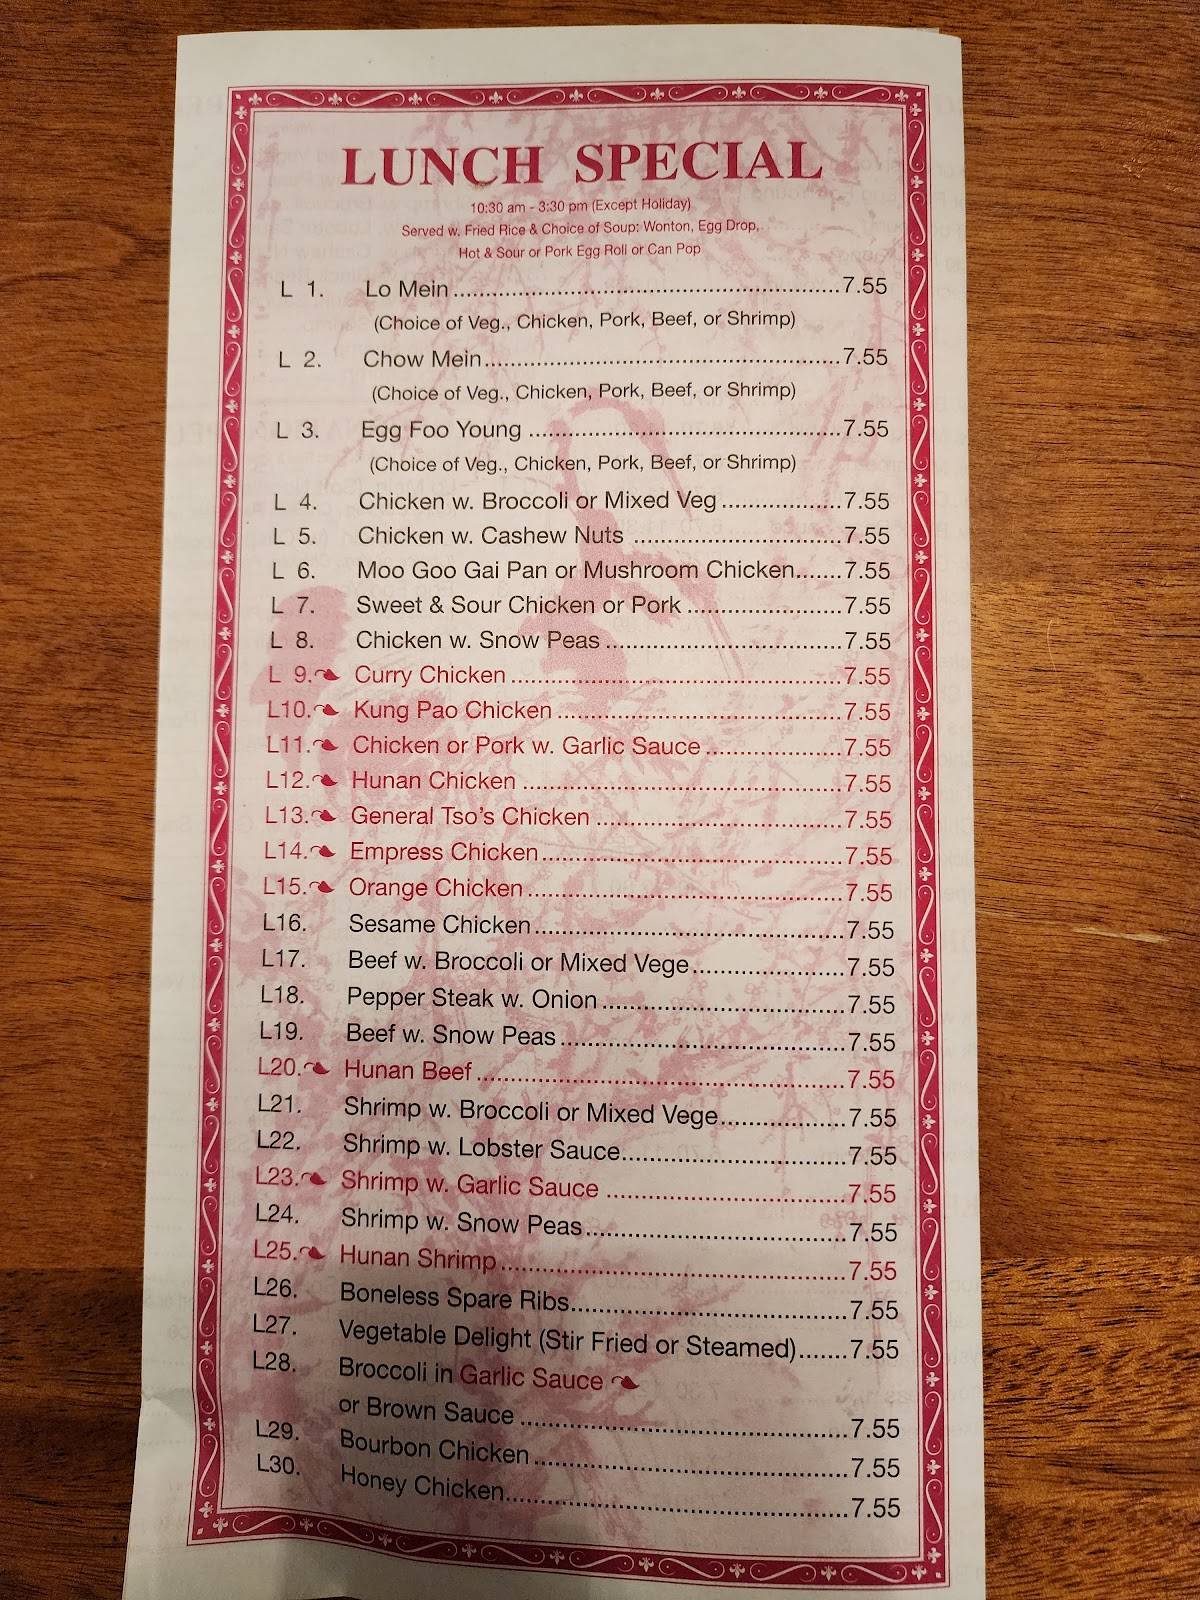 LUNCH SPECIAL
10:30 am - 3:30 pm (Except Holiday)
Served w. Fried Rice & Choice of Soup: Wonton, Egg Drop,
Hot & Sour or Pork Egg Roll or Can Pop
L 1. Lo Mein 7.55
(Choice of Veg., Chicken, Pork, Beef, or Shrimp)
L 2. Chow Mein 7.55
(Choice of Veg., Chicken, Pork, Beef, or Shrimp)
L 3. Egg Foo Young 7.55
(Choice of Veg., Chicken, Pork, Beef, or Shrimp)
L 4. Chicken w. Broccoli or Mixed Veg 7.55
L 5. Chicken w. Cashew Nuts 7.55
L 6. Moo Goo Gai Pan or Mushroom Chicken 7.55
L 7. Sweet & Sour Chicken or Pork 7.55
L 8. Chicken w. Snow Peas 7.55
L 9. Curry Chicken 7.55
L10. Kung Pao Chicken 7.55
L11. Chicken or Pork w. Garlic Sauce 7.55
L12. Hunan Chicken 7.55
L13. General Tso's Chicken 7.55
L14. Empress Chicken 7.55
L15. Orange Chicken 7.55
L16. Sesame Chicken 7.55
L17. Beef w. Broccoli or Mixed Vege 7.55
L18. Pepper Steak w. Onion 7.55
L19. Beef w. Snow Peas 7.55
L20. Hunan Beef 7.55
L21. Shrimp w. Broccoli or Mixed Vege 7.55
L22. Shrimp w. Lobster Sauce 7.55
L23. Shrimp w. Garlic Sauce 7.55
L24. Shrimp w. Snow Peas 7.55
L25. Hunan Shrimp 7.55
L26. Boneless Spare Ribs 7.55
L27. Vegetable Delight (Stir Fried or Steamed) 7.55
L28. Broccoli in Garlic Sauce
or Brown Sauce 7.55
L29. Bourbon Chicken 7.55
L30. Honey Chicken 7.55